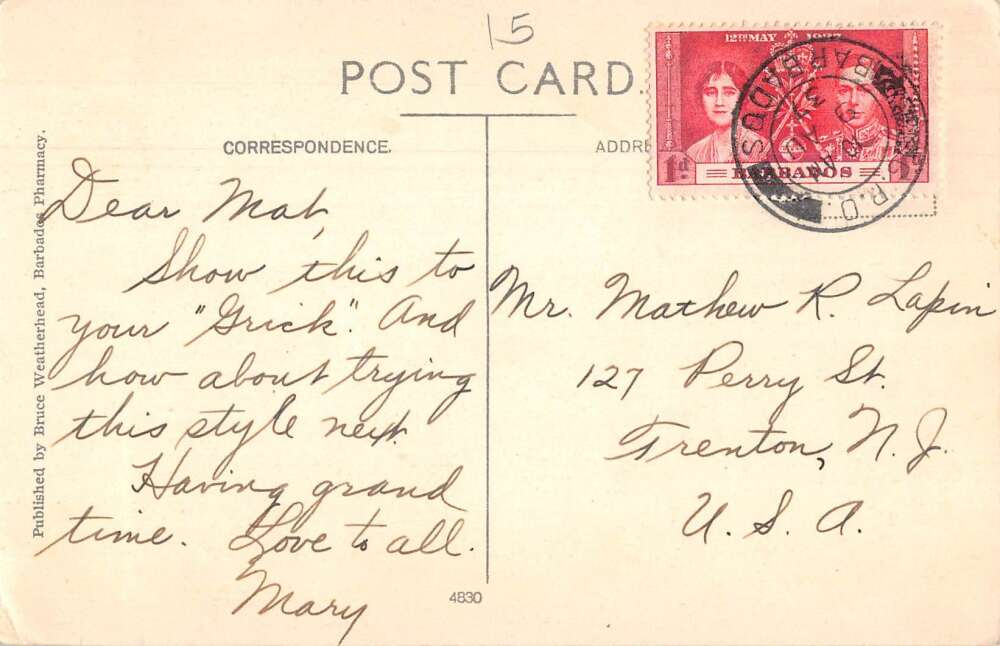 15
POST CARD.
CORRESPONDENCE.
ADDRE
12TH MAY 1937
1d
BARBADOS
BARBADOS
G.P.O.
Published by Bruce Weatherhead, Barbados Pharmacy.
Dear Mat,
Show this to
your "Grick". And
how about trying
this style next.
Having grand
time. Love to all.
Mary
Mr. Mathew R. Lapin
127 Perry St.
Trenton, N. J.
U. S. A.
4830